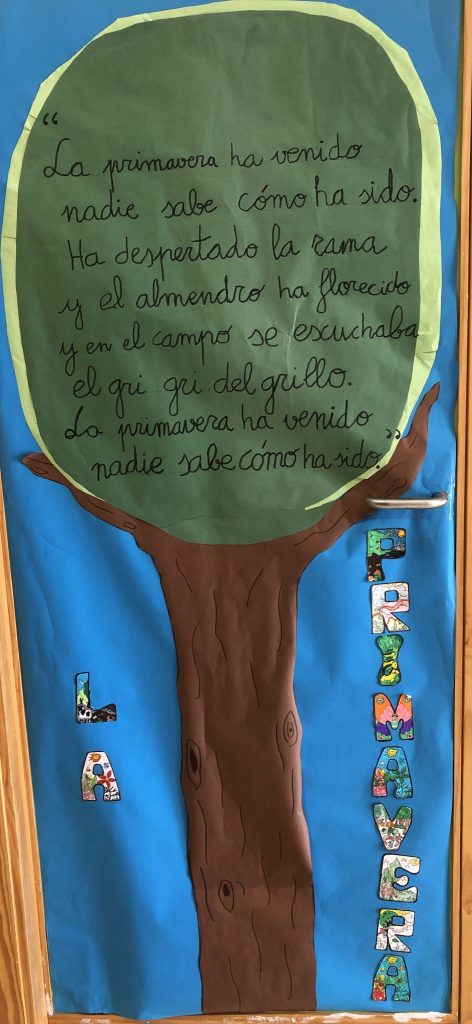 “La primavera ha venido
nadie sabe cómo ha sido.
Ha despertado la rama
y el almendro ha florecido
y en el campo se escuchaba
el gri gri del grillo.
La primavera ha venido
nadie sabe cómo ha sido.”
LA
PRIMAVERA